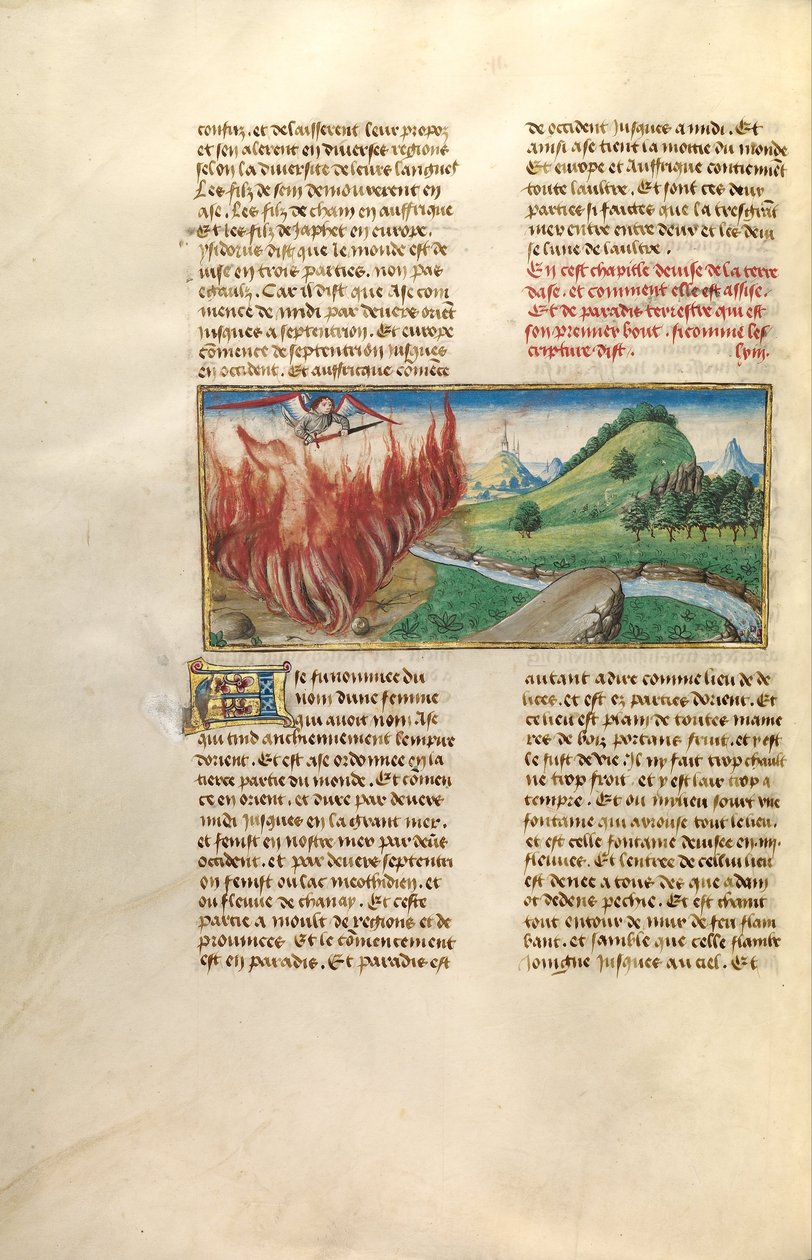 confuz. et delaisserent leur propoz
et sen alerent en diverses regions
selon la diversite de leurs langues
Les filz de sem demourerent en
ase. Les filz de cham en auffrique
Et les filz de Japhet en europe.
Ysidorus dist que le monde est de
uise en trois parties. non pas
egaulz. Car il dist que Ase com
mence de midi par devers orient
jusques a septentrion. Et europe
cōmence de septentrion jusques
en occident. Et auffricque cōmēce
de occident jusques a midi. Et
ainsi ase tient la moitie du monde
Et europe et Auffrique contiennēt
toute laultre. Et sont ces deux
parties si faictes que la tresgrāt
mer entre entre deux et les deui
se lune de laultre.
En cest chapitle devise de la terre
dase. et comment elle est assise.
Et de paradis terrestre qui est
son premier bout. si comme les
cripture dist. lvm.
Ase fu nommee du
nom dune femme
qui avoit nom Ase
qui tind anchiennement lempire
dorient. Et est ase ordonnee en la
tierce partie du monde. Et cōmen
ce en orient. et dure par devers
midi jusques en la grant mer.
et fenist en nostre mer par deūs
occident. et par devers septentri
on fenist ou lac meothidien. et
ou fleuve de thanay. Et ceste
partie a moult de regions et de
provinces Et le cōmencement
est en paradis. Et paradis est
autant a dire comme lieu de de
lices. et est ez parties dorient. Et
ce lieu est plain de toutes manie
res de boiz portans fruit. et y est
le fust de vie. Il ny fait trop chault
ne trop froit et y est lair trop a
tempre. Et ou mylieu sourt vne
fontaine qui arrouse tout le lieu.
et est celle fontaine devisee en .iiij.
fleuves. Et lentree de cellui lieu
est denee a tous des que adam
ot dedens pechie. Et est chaint
tout entour de mur de feu flam
bant. et samble que celle flambe
joingne jusques au ciel. Et